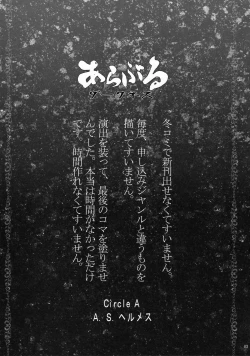 あらぶる
ダークネス
冬コミで新刊出せなくてすいません。
毎度、申し込みジャンルと違うものを
描いてすいません。
演出を装って、最後のコマを塗りませ
んでした。本当は時間がなかっただけ
です。時間作れなくてすいません。
Circle A
A. S. ヘルメス